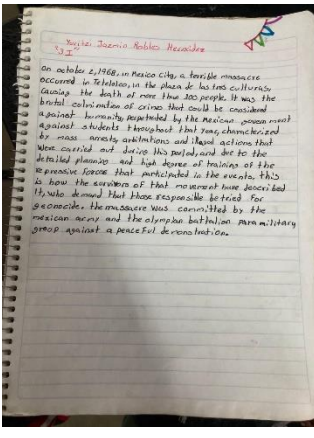 Jazmin Robles Hernández
"3 I"
On october 2, 1968, in Mexico City, a terrible massacre
occurred in Tlatelolco, in the plaza de las tres culturas,
causing the death of more than 300 people. It was the
brutal culmination of crimes that could be considered
against humanity, perpetrated by the Mexican government
against students throughout that year, characterized
by mass arrests, arbitrations and illegal actions that
were carried out during this period, and due to the
detailed planning and high degree of training of the
repressive forces that participated in the events, this
is how the survivors of that movement have described
it, who demand that those responsible be tried for
genocide. the massacre was committed by the
mexican army and the olympian battalion paramilitary
group against a peaceful demonstration.